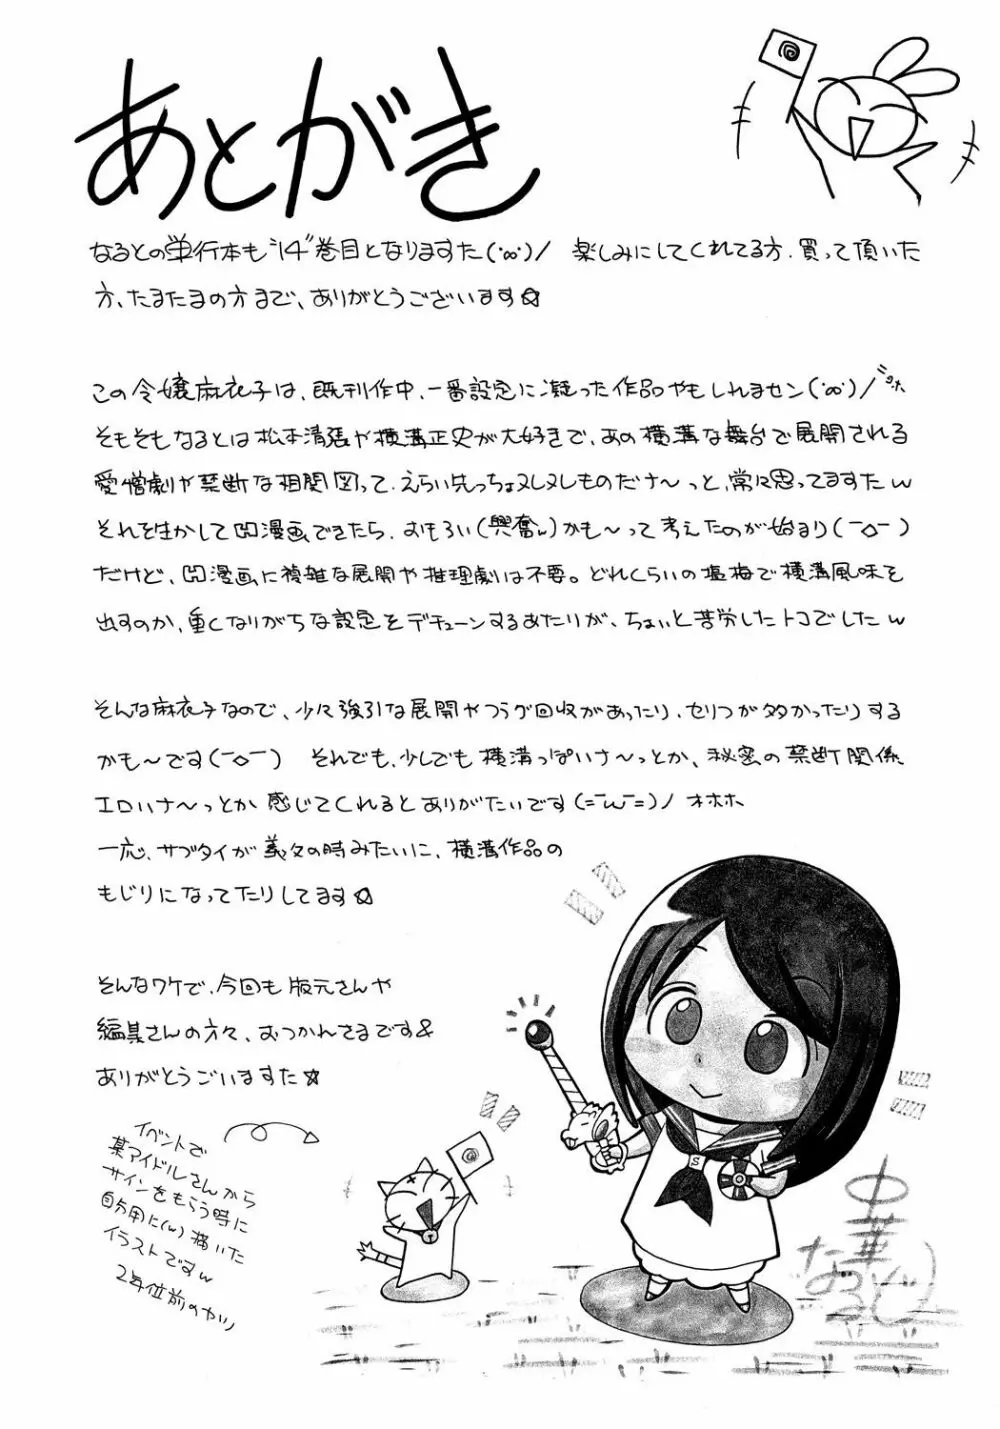 あとがき
なるとの単行本も"14"巻目となりますた(･ω･)ﾉ 楽しみにしてくれてる方、買って頂いた
方、たまたまの方まで、ありがとうございます☆
この令嬢麻衣子は、既刊作中、一番設定に凝った作品やもしれませセン(･ω･)ﾉ
そもそもなるとは松本清張や横溝正史が大好きで、あの横溝な舞台で展開される
愛憎劇や禁断な相関図って、えらい先っちょヌレヌレものだナ〜っと、常々思ってますたw
それを生かして凹漫画できたら、おもろい(興奮w)かも〜って考えたのが始まり(￣◇￣)
だけど、凹漫画に複雑な展開や推理劇は不要。どれくらいの塩梅で横溝風味を
出すのか、重くなりがちな設定をデチューンするあたりが、ちょいと苦労したトコでしたw
そんな麻衣子なので、少々強引な展開やフラグ回収があったり、セリフが多かったりする
かも〜です(￣◇￣) それでも、少しでも横溝っぽいナ〜っとか、秘密の禁断関係
エロいナ〜っとか感じてくれるとありがたいです(=￣ω￣=)ﾉ オホホ
一応、サブタイが義父の時みたいに、横溝作品の
もじりになってたりしてます☆
そんなワケで、今回も版元さんや
編集さんの方々、おつかれさまです&
ありがとうございますた☆
イベントで
某アイドルさんから
サインをもらう時に
自分用に(w)描いた
イラストですw
2年位前のヤツ
S
中華
なると